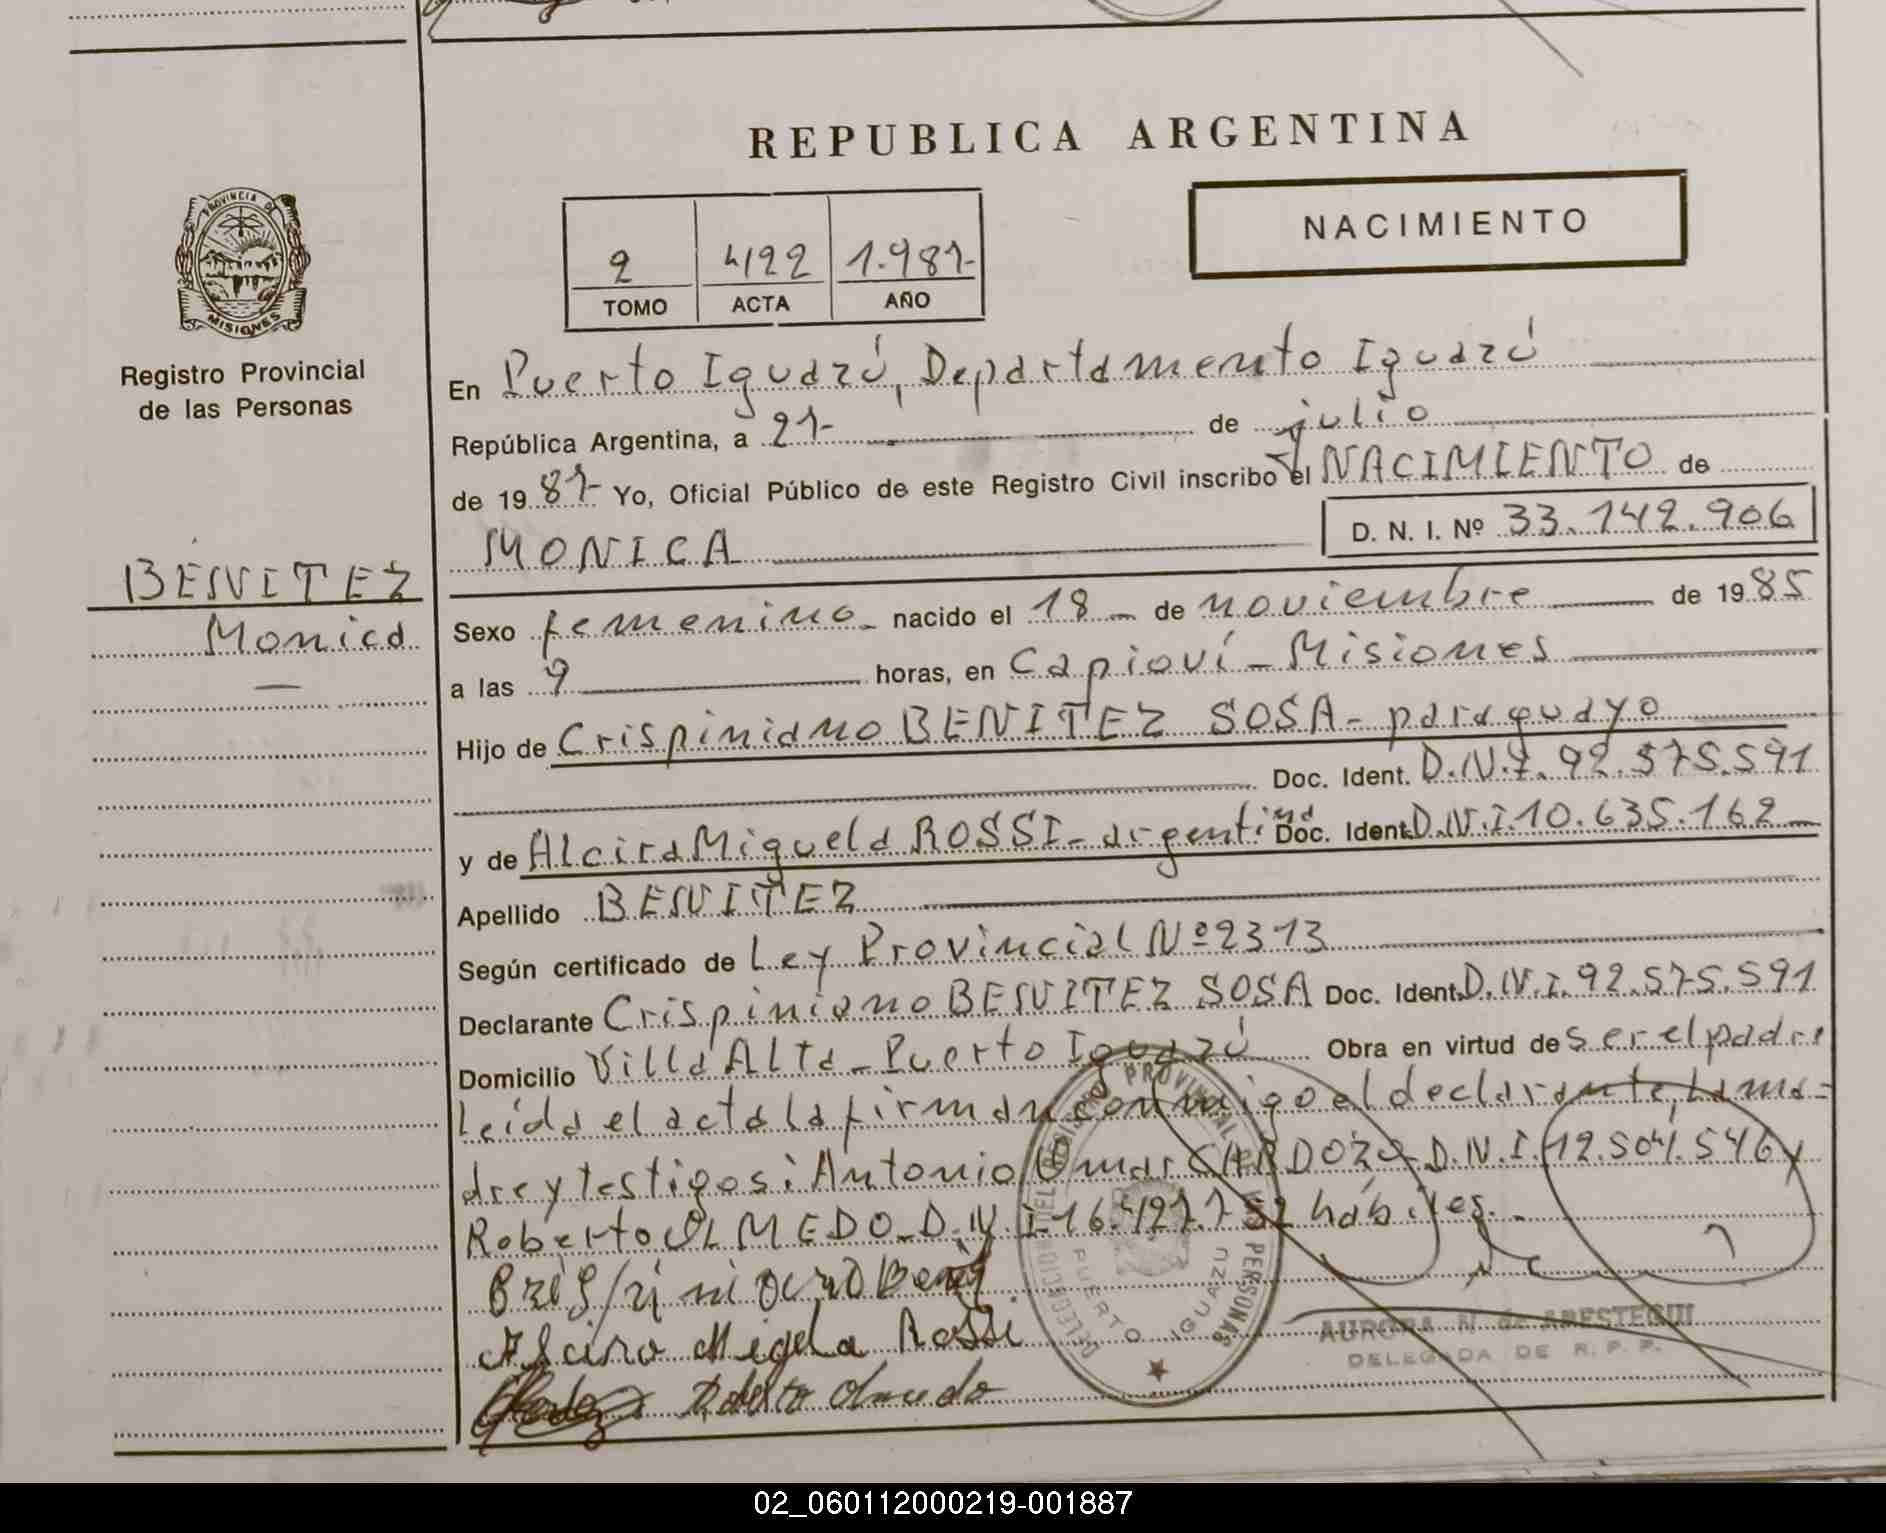 REPUBLICA ARGENTINA
NACIMIENTO
2
TOMO
422
ACTA
1.987-
AÑO
PROVINCIA DE
MISIONES
Registro Provincial
de las Personas
BENITEZ
Monica
En Puerto Iguazú, Departamento Iguazú
República Argentina, a 21- de julio
de 19 87- Yo, Oficial Público de este Registro Civil inscribo el NACIMIENTO de
MONICA D. N. I. Nº 33.142.906
Sexo femenino - nacido el 18 - de noviembre de 19 85
a las 9 horas, en Capioví - Misiones
Hijo de Crispiniano BENITEZ SOSA - paraguayo
Doc. Ident. D.N.I. 92.575.591
y de Alcira Miguela ROSSI - argentina Doc. Ident. D.N.I. 10.635.162
Apellido BENITEZ
Según certificado de Ley Provincial Nº 2313
Declarante Crispiniano BENITEZ SOSA Doc. Ident. D.N.I. 92.575.591
Domicilio Villa Alta - Puerto Iguazú Obra en virtud de ser el padre
Leída el acta la firman conmigo el declarante, La ma=
dre y testigos: Antonio Omar CARDOZO - D.N.I. 12.504.546 y
Roberto OLMEDO - D.N.I. hábiles. -
Alcira Migela Rossi
Roberto Olmedo
PUERTO IGUAZU
AURORA N. de ARESTEGUI
DELEGADA DE R. P. P.
02_060112000219-001887